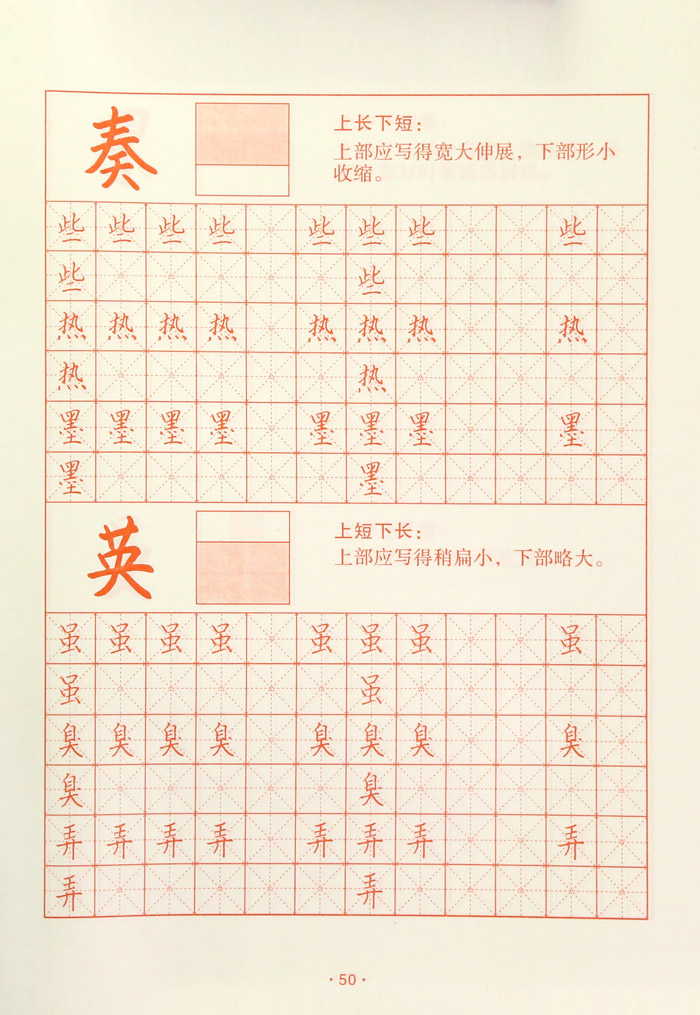 奏
上长下短：
上部应写得宽大伸展，下部形小
收缩。
些 些 些 些 些 些 些 些
些 些
热 热 热 热 热 热 热 热
热 热
墨 墨 墨 墨 墨 墨 墨 墨
墨 墨
英
上短下长：
上部应写得稍扁小，下部略大。
虽 虽 虽 虽 虽 虽 虽 虽
虽 虽
臭 臭 臭 臭 臭 臭 臭 臭
臭 臭
弄 弄 弄 弄 弄 弄 弄 弄
弄 弄
·50·